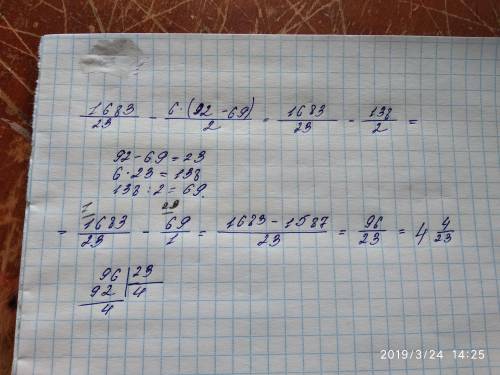 1683/23 - 6·(92-69)/2 = 1683/23 - 138/2 =
92-69=23
6·23=138
138:2=69.
= 1683/23 - 69/1 = 1683-1587/23 = 96/23 = 4 4/23
1 23
96 | 23
92 | 4
4
2019/3/24 14:25